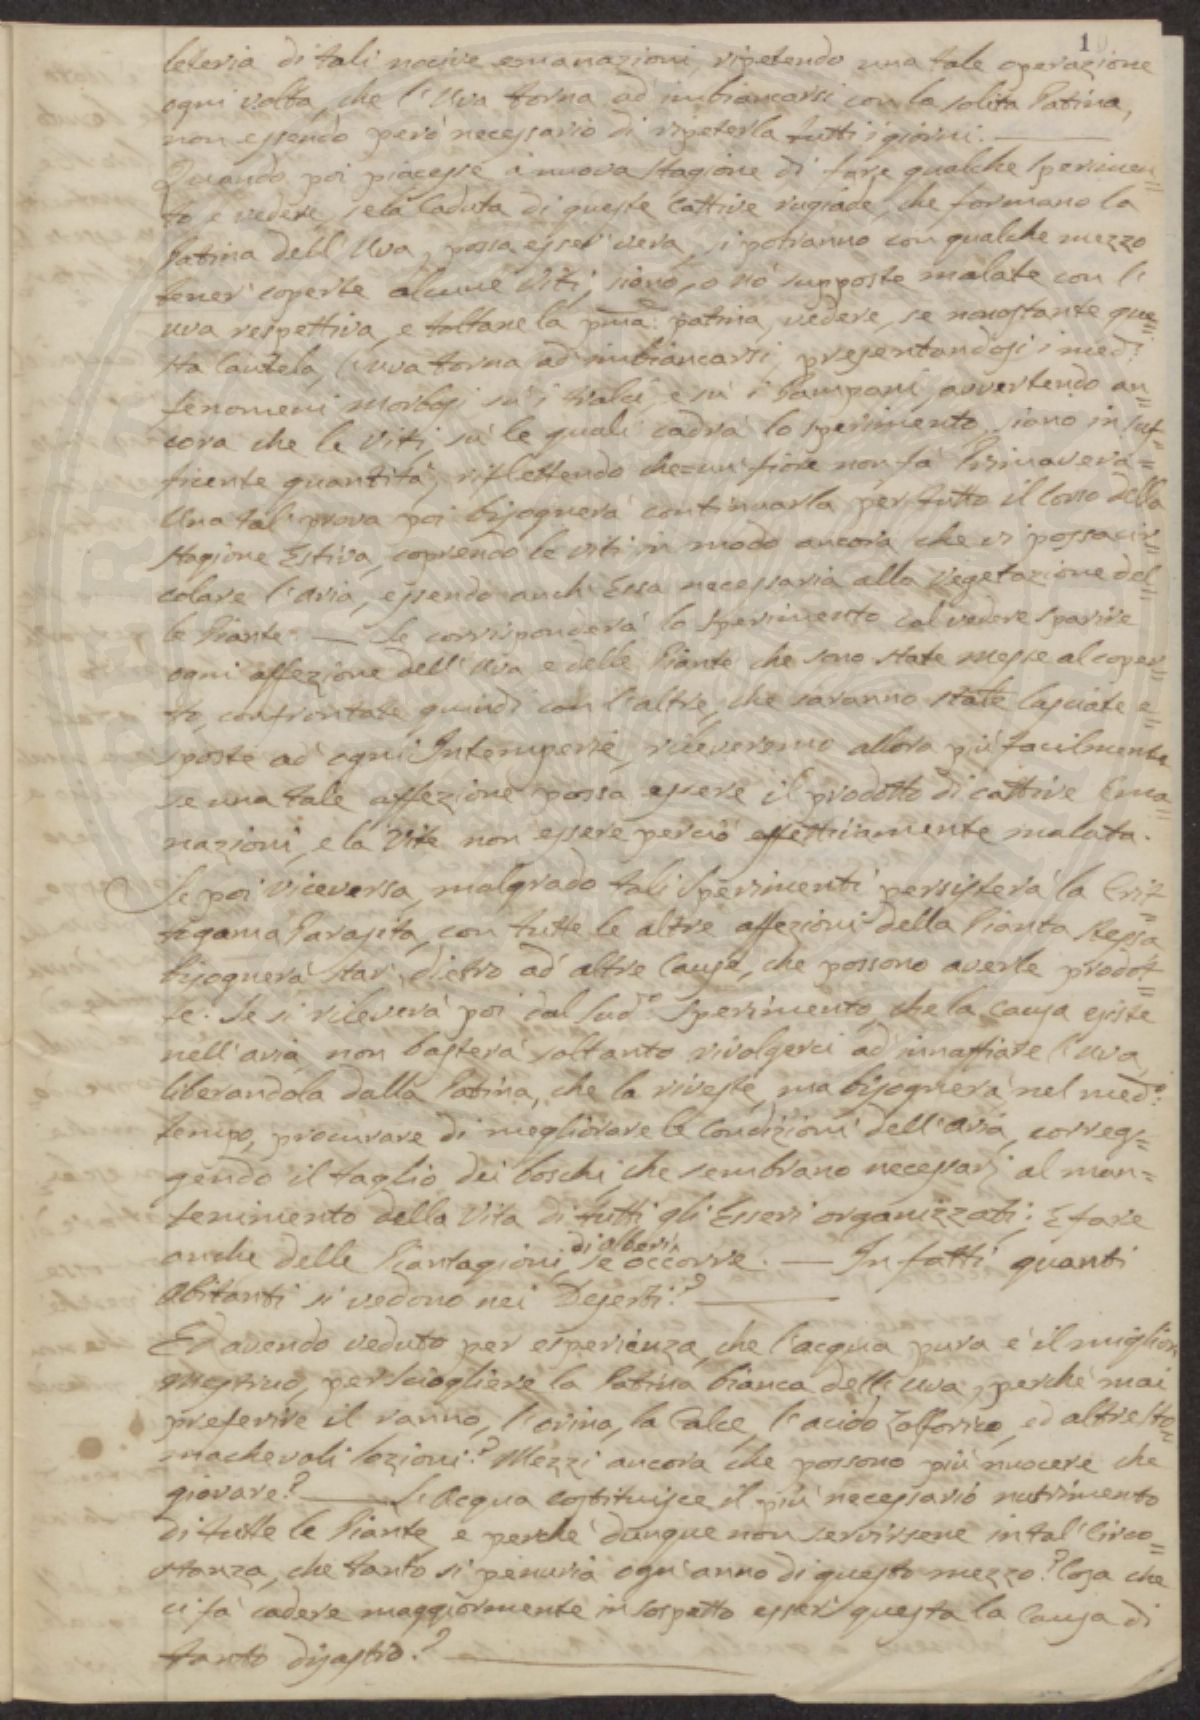 1
leteria di tali nocive emanazioni, ripetendo una tale operazione
ogni volta, che l'Uva torna ad imbiancarsi con la solita Patina,
non essendo però necessario di ripeterla tutti i giorni. —
Quando poi piacesse a nuova stagione di fare qualche Sperimen=
to, e vedere, se la Caduta di queste Cattive rugiade, che formano la
Patina dell'Uva, possa esser vera, si potranno con qualche mezzo
tener coperte alcune Viti, siano, o nò supposte malate con l'
uva respettiva, e toltane la pma: patina, vedere, se nonostante que=
sta Cautela, l'uva torna ad imbiancarsi, presentandosi i medi:
fenomeni morbosi su i tralci, e su i Pampani, avvertendo an=
cora che le Viti, sù le quali cadrà lo sperimento, siano in suf=
ficente quantità, riflettendo che = un fiore non fà Primavera =
Una tal prova poi bisognerà continuarla per tutto il Corso della
stagione Estiva, coprendo le viti in modo ancora che vi possa cir=
colare l'aria, essendo anch'Essa necessaria alla Vegetazione del=
le Piante. — Se corrisponderà lo Sperimento col vedere sparire
ogni affezione dell'Uva e delle Piante che sono state messe al coper=
to, confrontate quindi con l'altre, che saranno state lasciate e=
sposte ad ogni Intemperie, rileveremo allora più facilmente
se una tale affezione possa essere il prodotto di cattive Ema=
nazioni, e la Vite non essere perciò effettivamente malata.
Se poi viceversa, malgrado tali Sperimenti persisterà la Crit=
togama Parasita, con tutte le altre affezioni della Pianta stessa
bisognerà star dietro ad altre Cause, che possono averle prodot=
te. Se si rileverà poi dal Sudo: Sperimento, che la Causa esiste
nell'aria, non basterà soltanto rivolgerci ad innaffiare l'Uva,
liberandola dalla Patina, che la riveste, ma bisognerà nel medo:
tempo, procurare di megliorare le Condizioni dell'Aria, correg=
gendo il taglio dei boschi che sembrano necessarj al man=
tenimento della Vita di tutti gli Esseri organizzati; E fare
anche delle Piantagioni di alberi, se occorre. — In fatti quanti
Abitanti si vedono nei Deserti? —
Ed avendo veduto per esperienza, che l'acqua pura è il miglior
Mestruo, per sciogliere la Patina bianca dell'uva, perchè mai
preferire il ranno, l'orina, la Calce, l'acido Zolforico, ed altre sto=
machevoli lozioni? Mezzi ancora che possono più nuocere che
giovare? — L'Acqua costituisce il più necessario nutrimento
di tutte le Piante, e perchè dunque non servirsene in tal Circo=
stanza, che tanto si penuria ogn'anno di questo mezzo? Cosa che
ci fà cadere maggiormente in sospetto esser questa la Causa di
tanto disastro? —